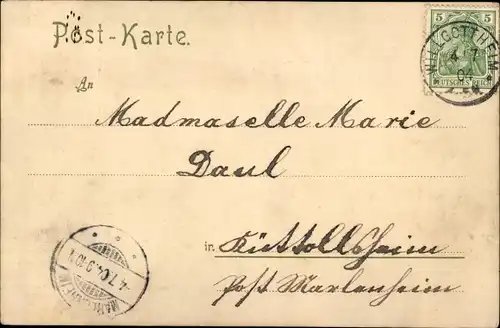 Post-Karte.
5 5
DEUTSCHES REICH
WILLGOTTHEIM
4 7
04
An
Madmaselle Marie
Daul
in Küttollsheim
Post Marlenheim
4.7.04. 9-10 V.